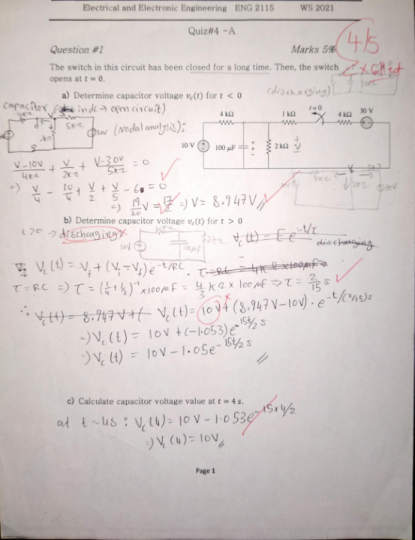 Electrical and Electronic Engineering ENG 2115 WS 2021
Quiz#4 -A
4/5
Question #1 Marks 5%
The switch in this circuit has been closed for a long time. Then, the switch
opens at t = 0.
(discharging)
a) Determine capacitor voltage vc(t) for t < 0
capacitor
open circuit)
(Nodal analysis):
4 kΩ 1 kΩ t=0 4 kΩ 30 V
10 V 100 μF 2 kΩ V
V-10V/4kΩ + V/2kΩ + V-30V/5kΩ = 0
=) V/4 - 10/4 + V/2 + V/5 - 6 = 0
=) 19/20 V = 17/2 =) V = 8.947V
b) Determine capacitor voltage vc(t) for t > 0
t>0 → discharging
10V
Vc(t) = E e^-t/τ
discharging
Vc(t) = Vf + (Vi - Vf) e^-t/RC . τ = RC = 4k × 100μF
τ = RC => τ = (1/4 + 1/2)^-1 × 100μF = 4/3 kΩ × 100μF => τ = 2/15 s
∴ Vc(t) = 8.947V + ( Vc(t) = 10V + (8.947V - 10V) · e^-t/(2/15)s
=) Vc(t) = 10V + (-1.053) e^-15t/2 s
=) Vc(t) = 10V - 1.05e^-15t/2 s
c) Calculate capacitor voltage value at t = 4 s.
at t = 4s : Vc(4) = 10V - 1.053e^-15×4/2
=) Vc(4) = 10V
Page 1